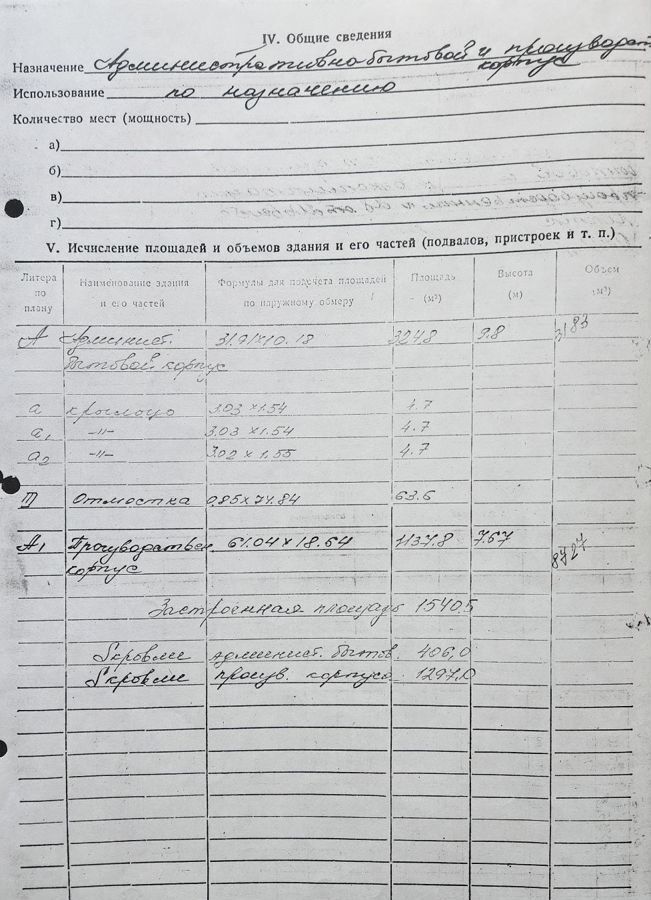 IV. Общие сведения
Назначение Административно бытовой и производст
корпус
Использование по назначению
Количество мест (мощность)
а)
б)
в)
г)
V. Исчисление площадей и объемов здания и его частей (подвалов, пристроек и т. п.)
Литера по плану Наименование здания и его частей Формулы для подсчета площадей по наружному обмеру Площадь (м²) Высота (м) Объем (м³)
А Админист. 31.91×10.18 324.8 9.8 3183
бытовой корпус
а крыльцо 3.03×1.54 4.7
а1 -"- 3.03×1.54 4.7
а2 -"- 3.02×1.55 4.7
III Отмостка 0.85×74.84 63.6
А1 Производствен. 61.04×18.64 1137.8 7.67 8727
корпус
Застроенная площадь 1540.5
Sкровли админист. бытов. 406,0
Sкровли произв. корпуса 1297,0